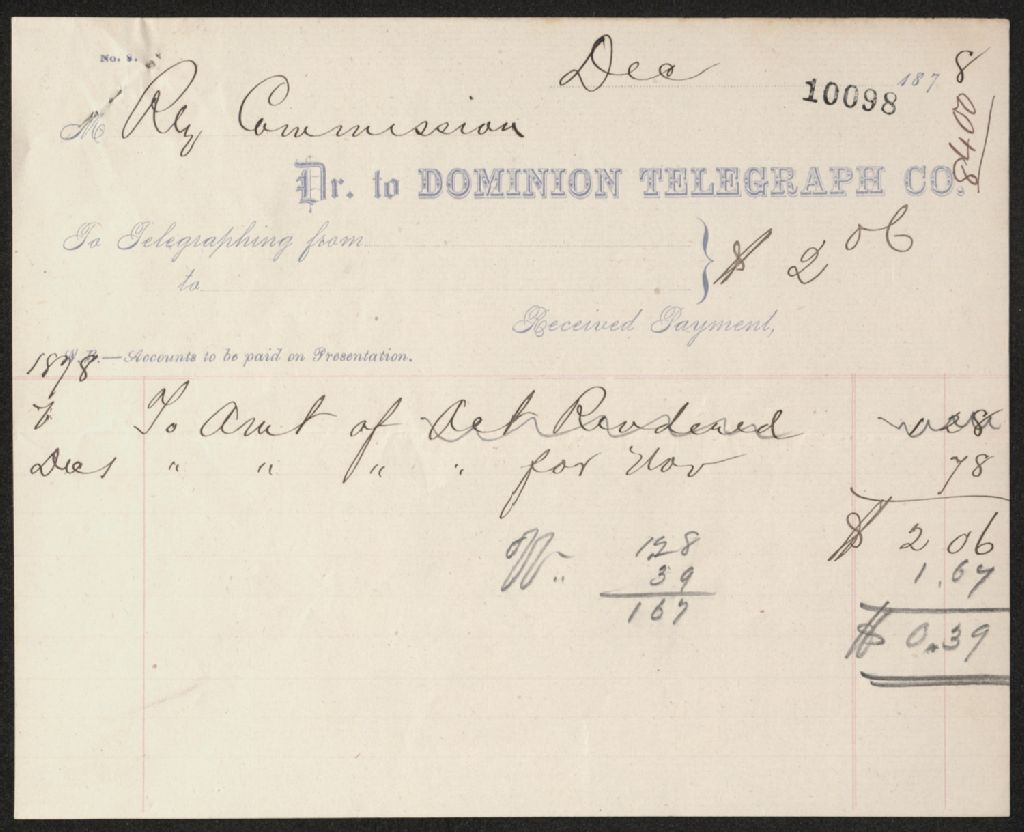 No. 9.
Dec
10098 187 8
84008
Mr Rly Commission
Dr. to DOMINION TELEGRAPH CO.
To Telegraphing from
to
$ 2 06
Received Payment,
N.B.—Accounts to be paid on Presentation.
1878
To Amt of Act Rendered 1 28
Dec 1 " " " " for Nov 78
$ 2 06
W. " 128
39
167
1.67
$ 0.39